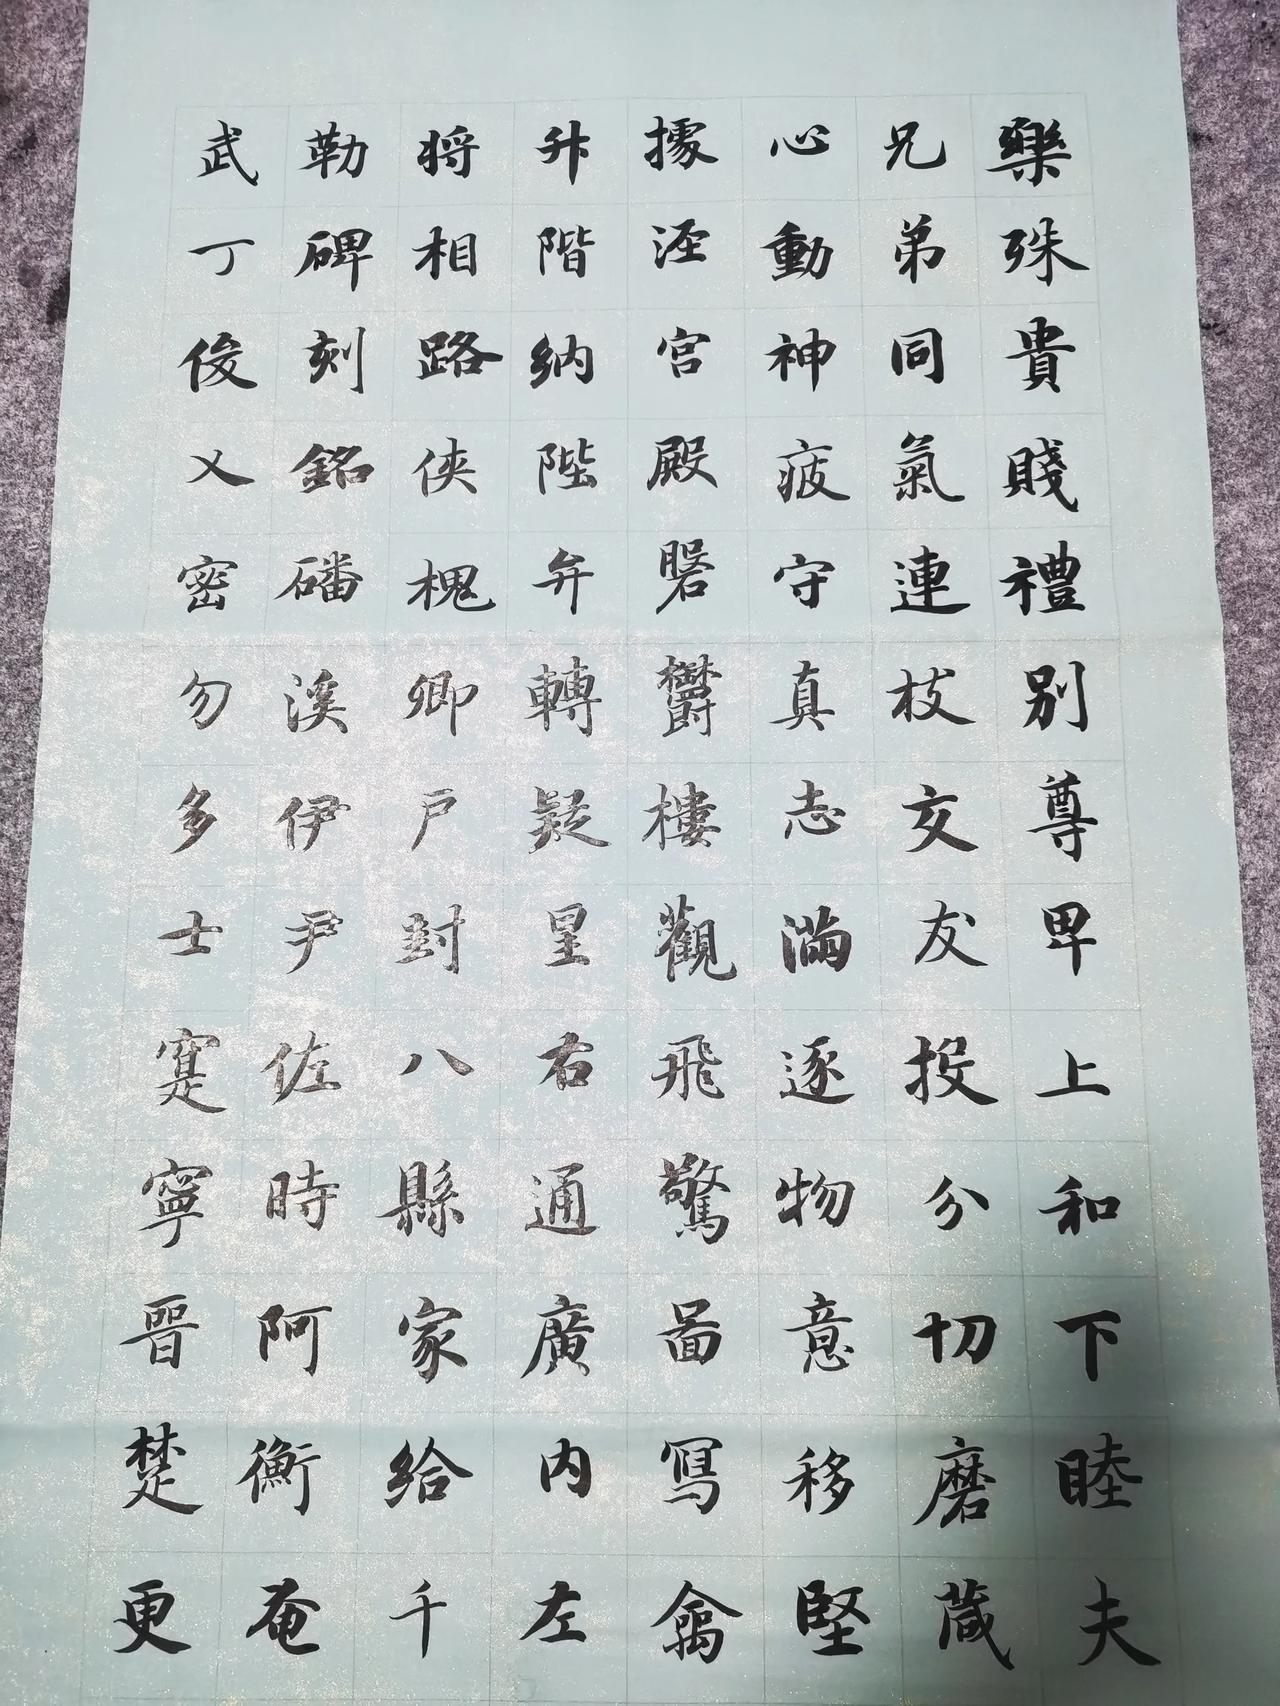 樂殊貴賤禮別尊卑上和下睦夫
兄弟同氣連枝交友投分切磨箴
心動神疲守真志滿逐物意移堅
據涇宮殿磐鬱樓觀飛驚圖寫禽
升階納陛弁轉疑星右通廣內左
將相路俠槐卿戶封八縣家給千
勒碑刻銘磻溪伊尹佐時阿衡奄
武丁俊乂密勿多士寔寧晉楚更